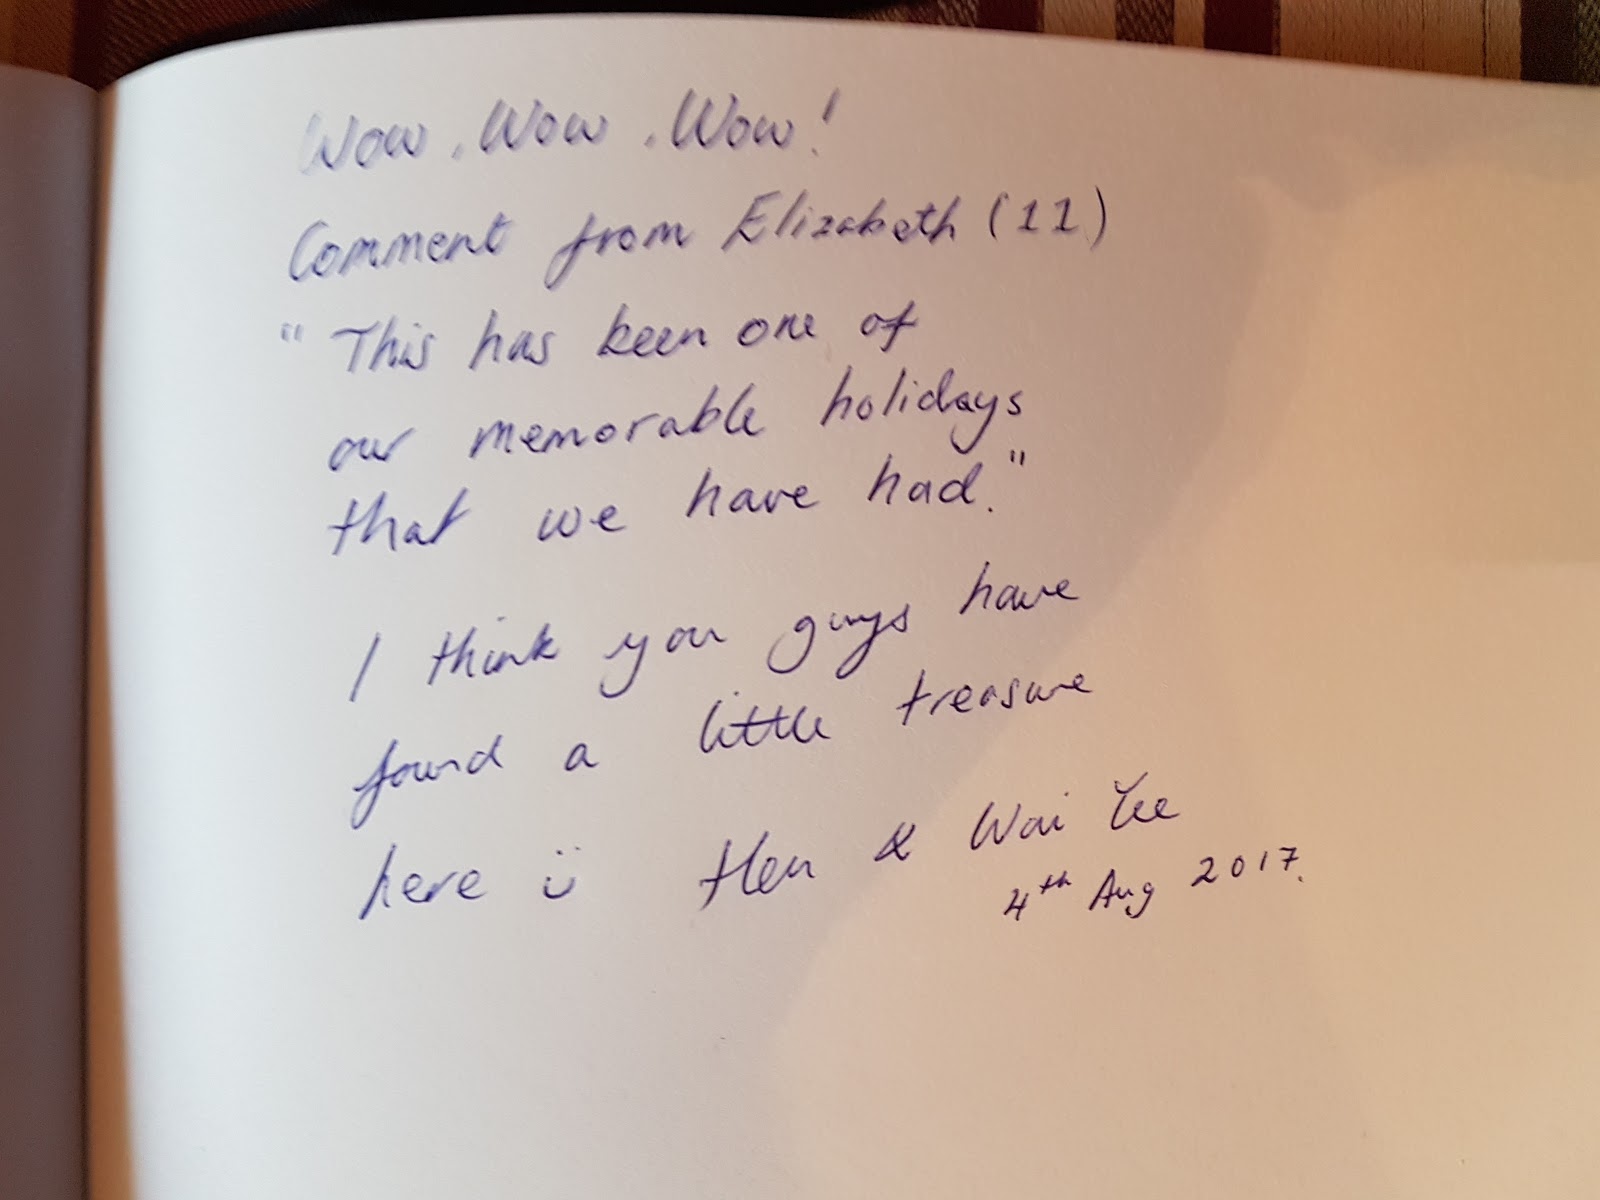 Wow. Wow. Wow!
Comment from Elizabeth (11)
"This has been one of
our memorable holidays
that we have had."
I think you guys have
found a little treasure
here & Wai Yee
4th Aug 2017.